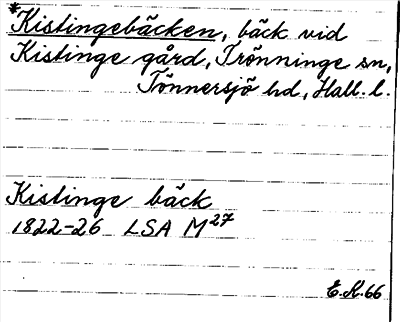 *Kistingebäcken, bäck vid
Kistinge gård, Trönninge sn,
Tönnersjö hd, Hall. l.
Kistinge bäck
1822-26 LSA M27
E.K.66